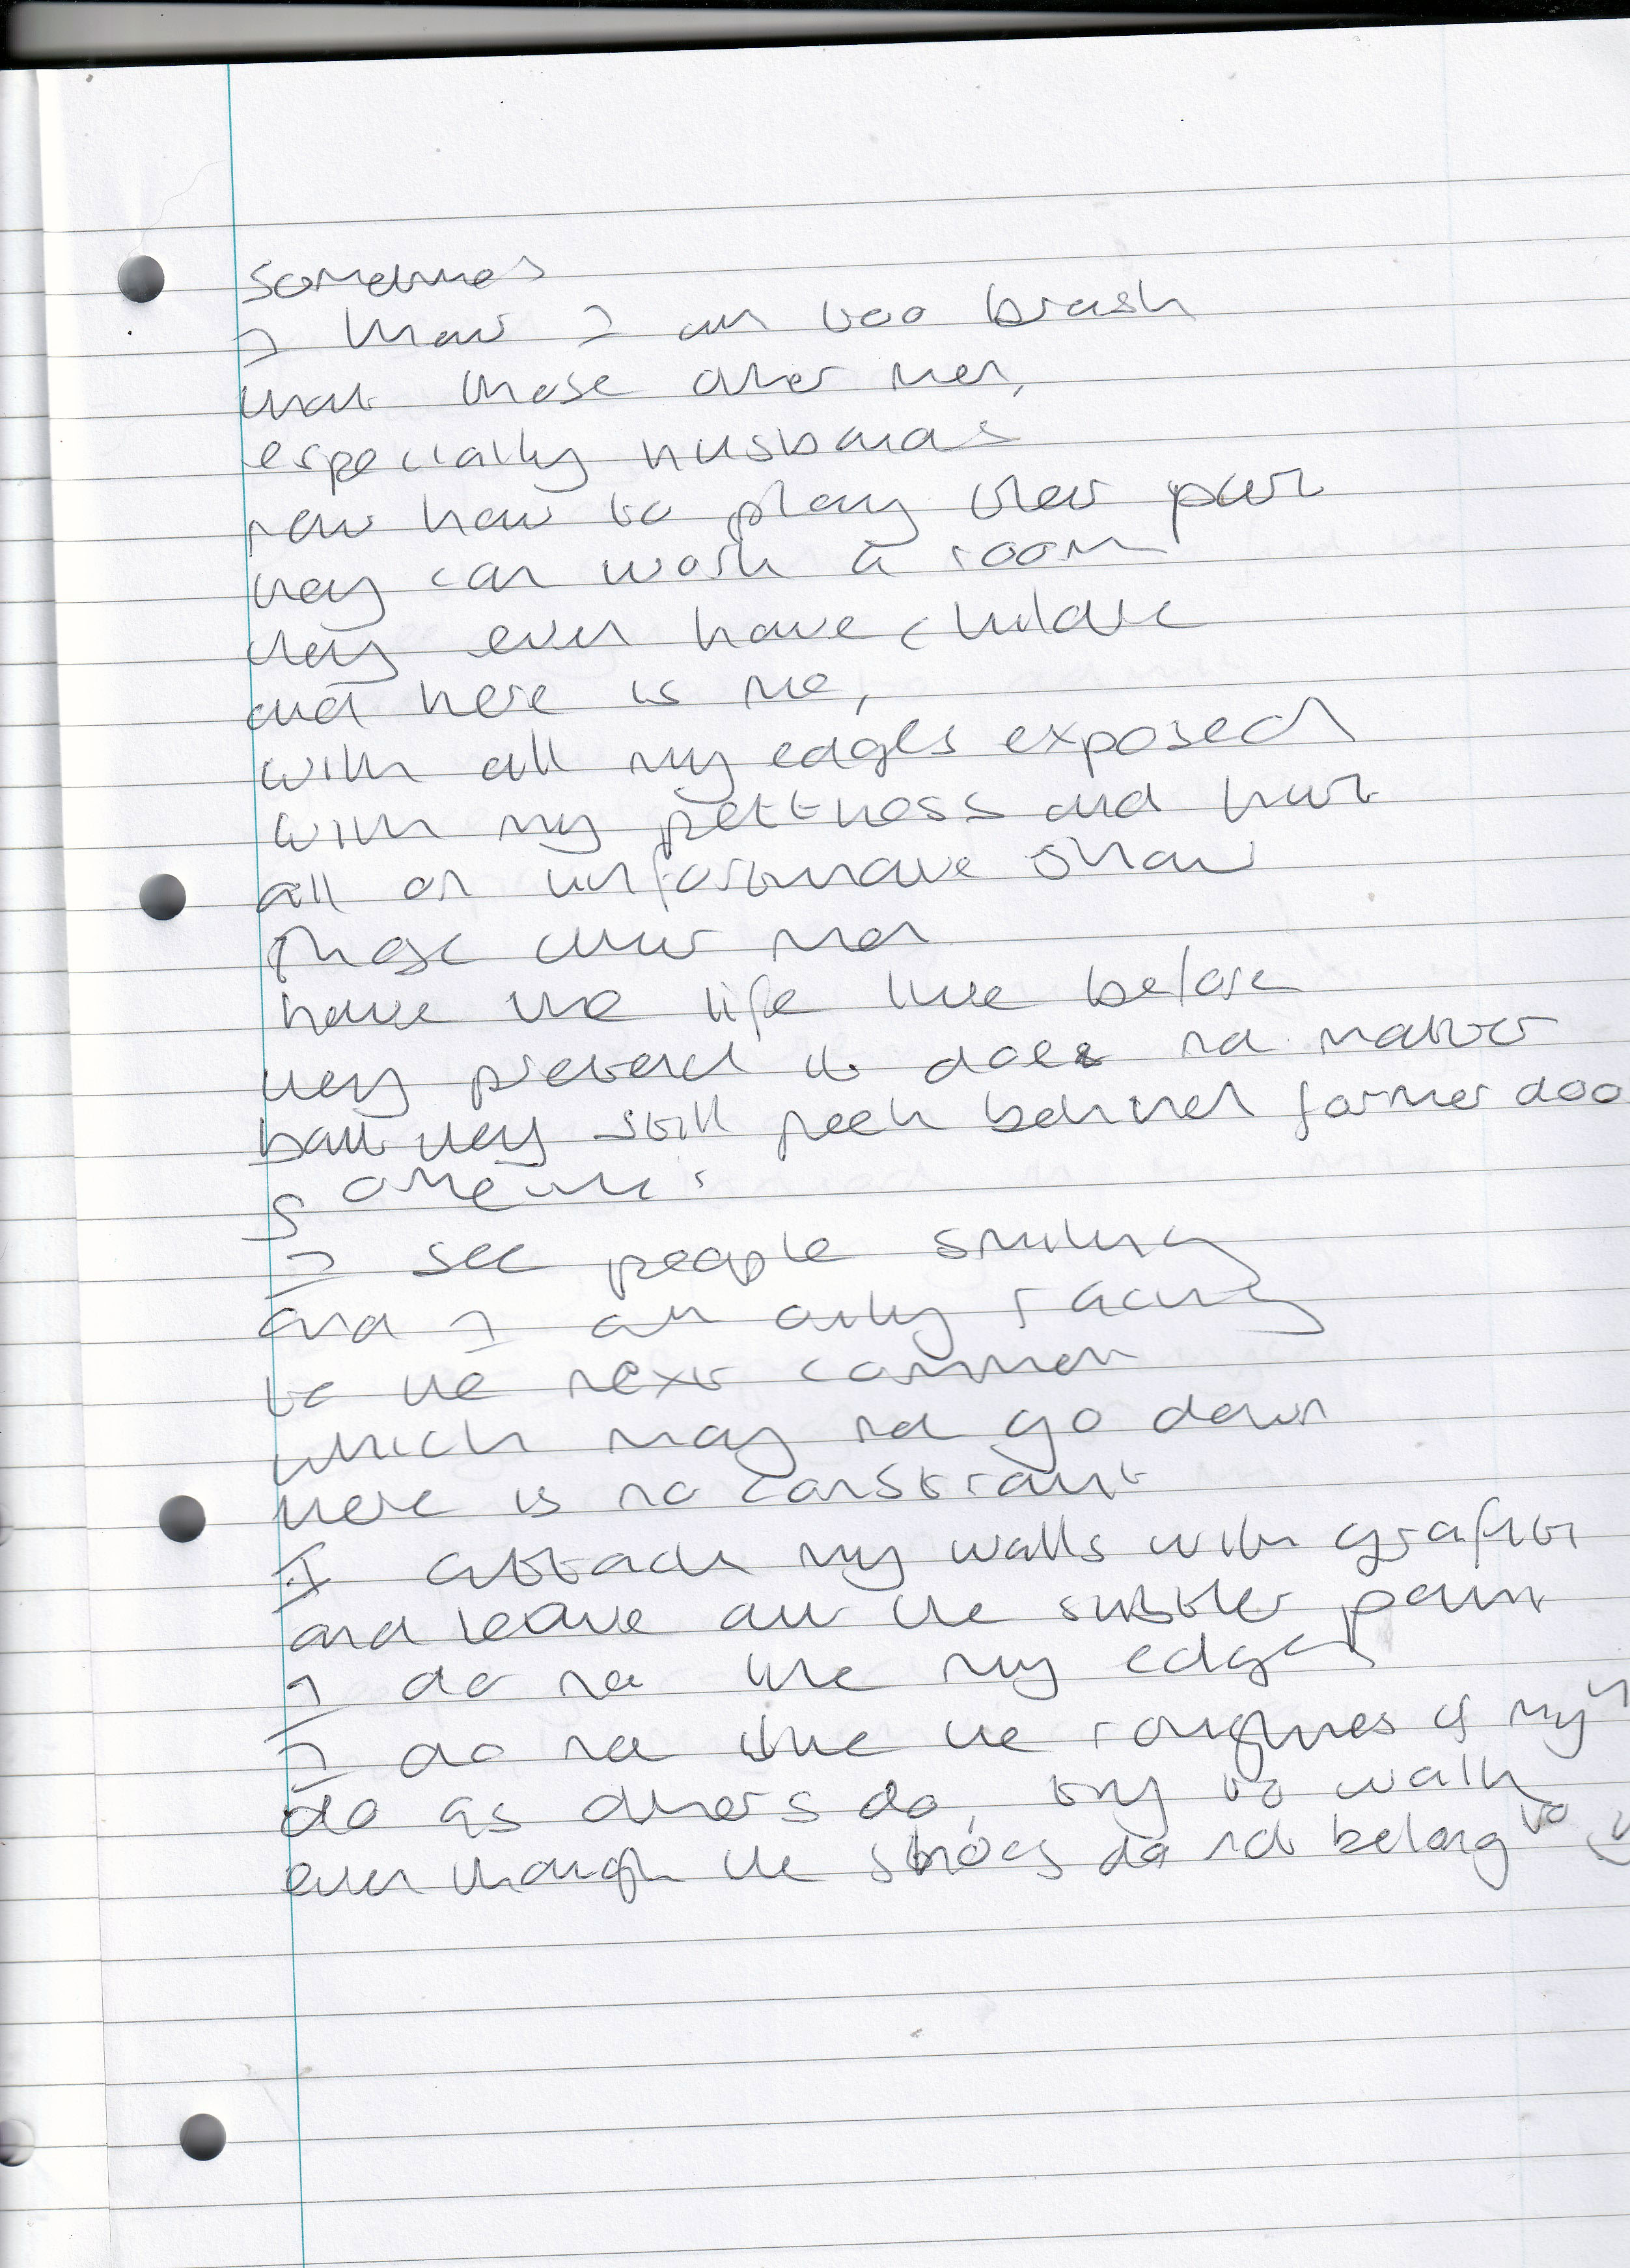 Sometimes
I know I am too brash
that those other men,
especially husbands
now how to play their part
they can work a room
they even have childre
and here is me,
with all my edges exposed
with my pettness and hurt
all on unfortunate show
Those other men
have the life live before
they pretend it does not matter
but they still peek behind former doo
Sometimes
I see people smiling
and I am only racing
to the next common
which may not go down
there is no constraint
I attack my walls with grafitti
and leave out the subtler paint
I do not like my edges
I do not like the roughnes of my
do as others do, try to walk
even though the shoes do not belong to